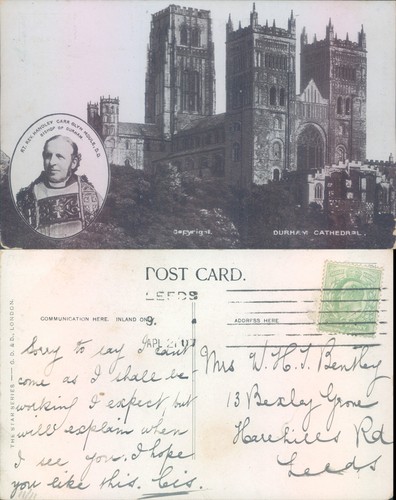 RT. REV. HANDLEY CARR GLYN MOULE, D.D.
BISHOP OF DURHAM
Copyright.
DURHAM CATHEDRAL.
POST CARD.
LEEDS
COMMUNICATION HERE. INLAND ONLY
ADDRESS HERE
THE STAR SERIES — G. D. & D., LONDON.
Sorry to say I cant
come as I shall be
working I expect, but
will explain when
I see you. I hope
you like this. Cis.
Mrs W. H. J. Bentley
13 Bexley Grove
Harehills Rd
Leeds